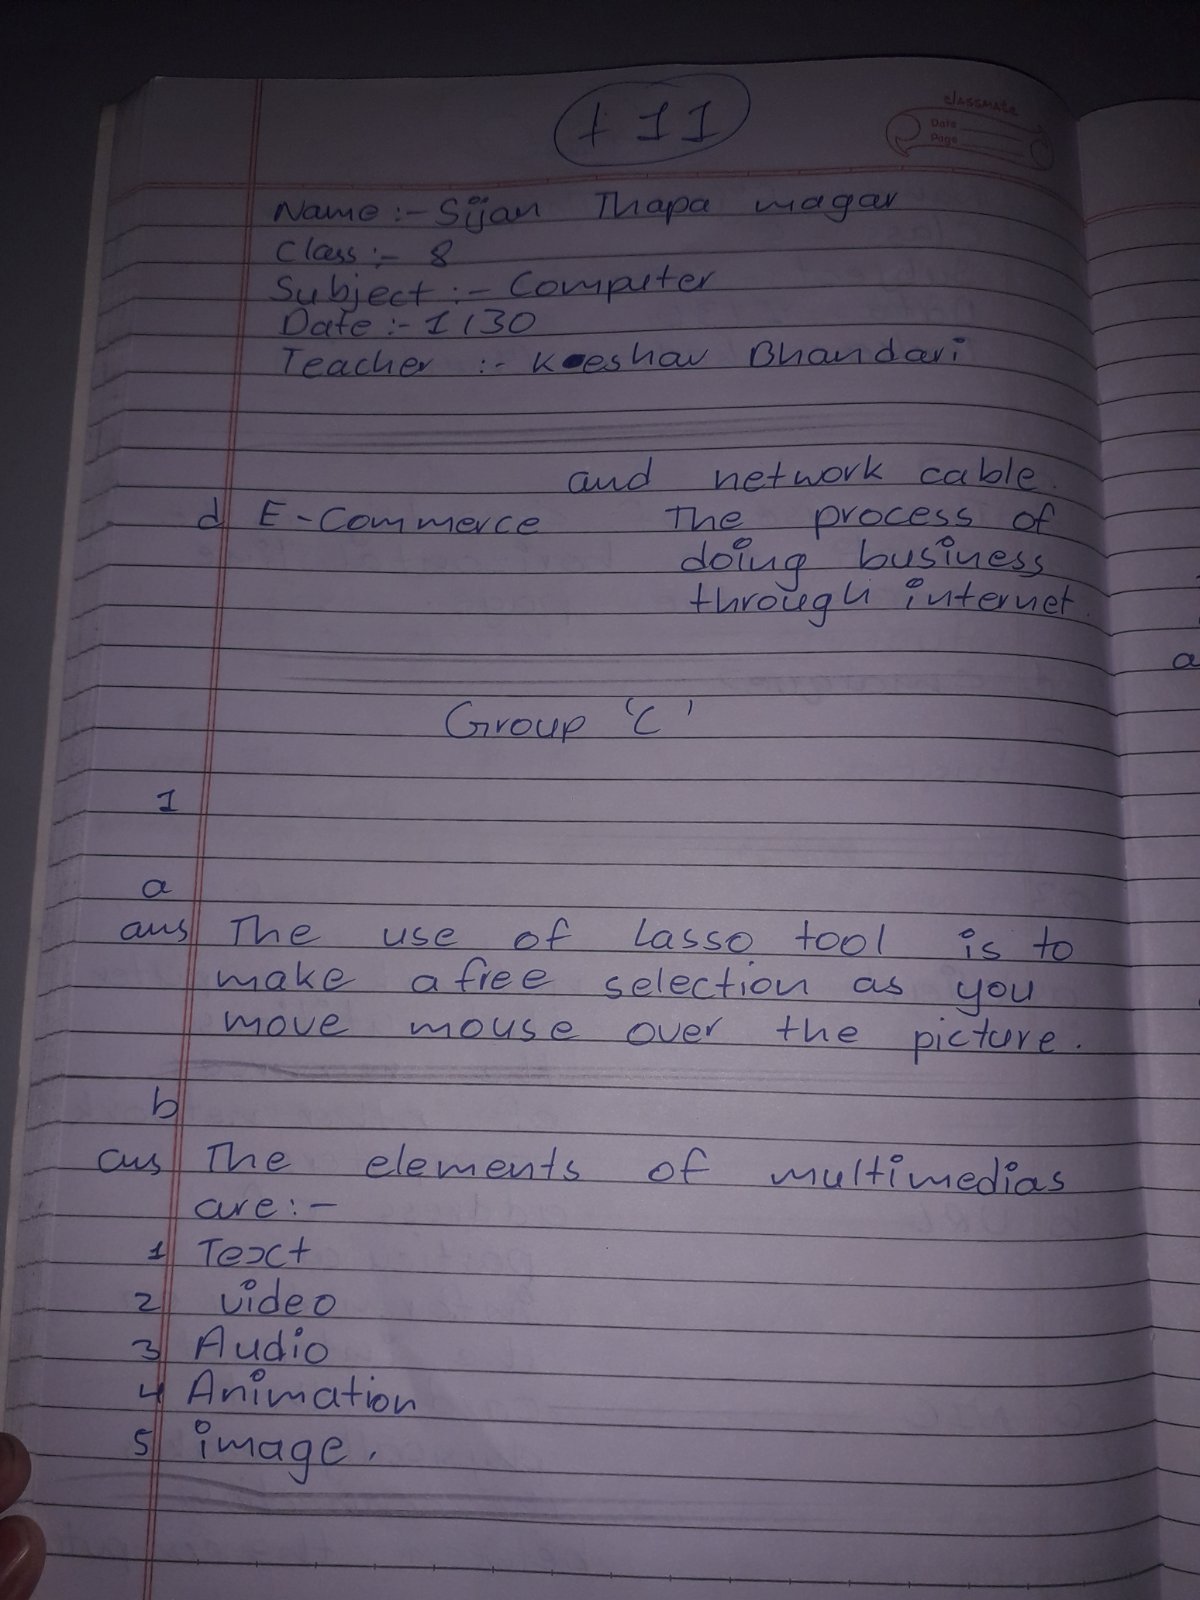 + 11
classmate
Date
Page
Name :- Sijan Thapa magar
Class :- 8
Subject :- Computer
Date :- 1/30
Teacher :- Keshav Bhandari
and network cable.
d E-Commerce The process of
doing business
through internet.
a
Group 'C'
1
a
ans The use of Lasso tool is to
make a free selection as you
move mouse over the picture.
b
ans The elements of multimedias
are :-
1 Text
2 video
3 Audio
4 Animation
5 image.